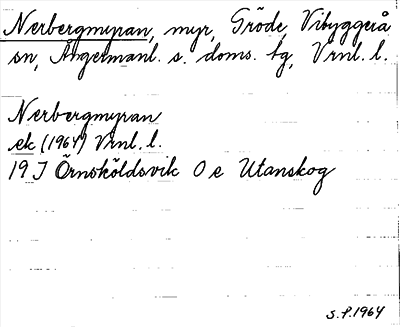 Nerbergmyran, myr, Gröde, Vibyggerå
sn, Ångermanl. s. doms. tg, Vrnl. l.
Nerbergmyran
ek (1964) Vrnl. l.
19 J Örnsköldsvik O e Utanskog
S.P. 1964